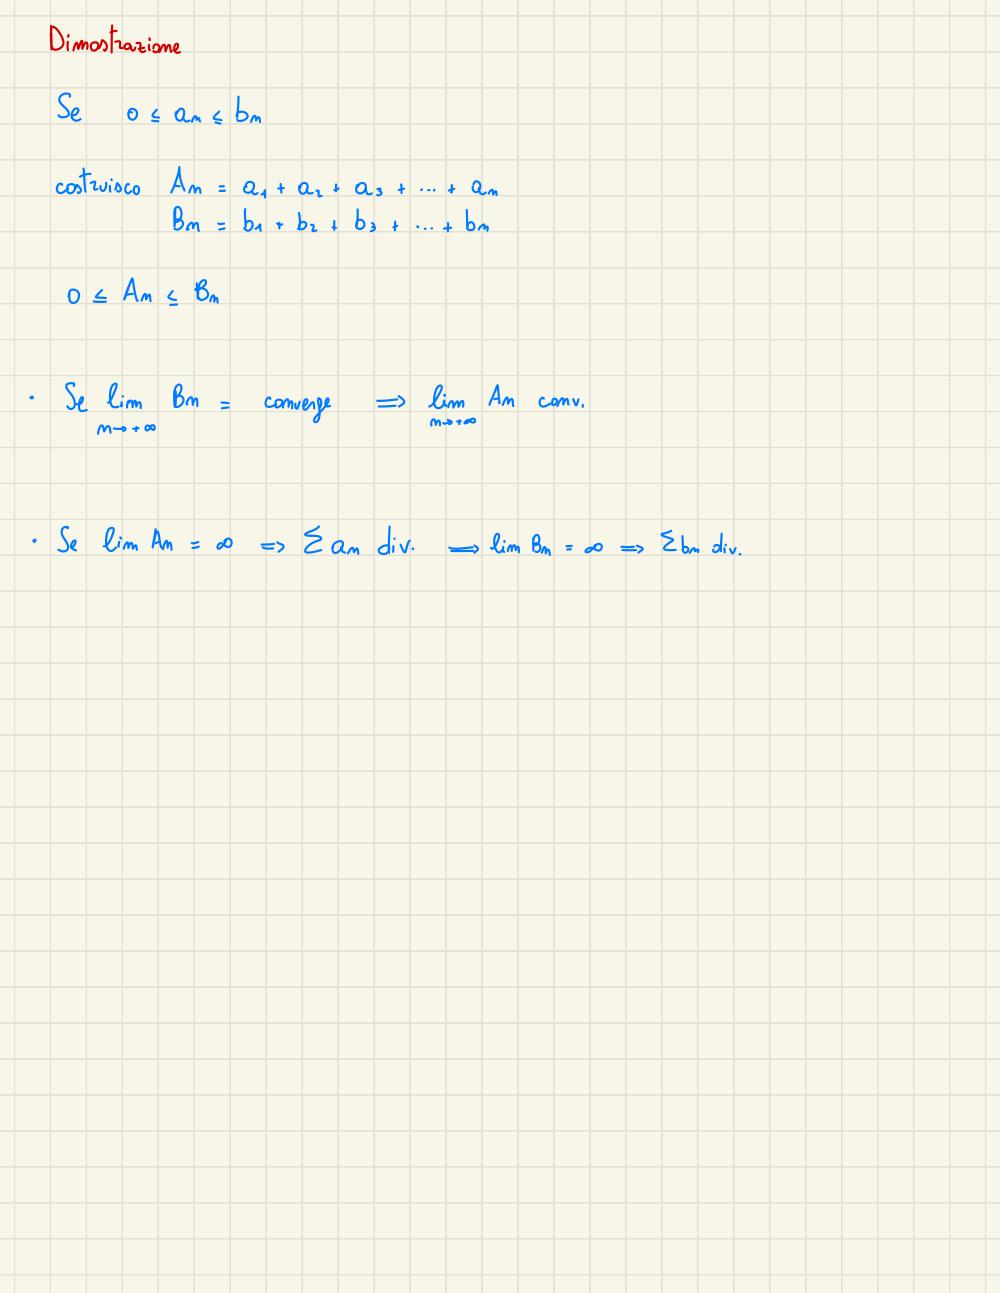 Dimostrazione
Se 0 ≤ aₙ ≤ bₙ
costruisco Aₙ = a₁ + a₂ + a₃ + ... + aₙ
Bₙ = b₁ + b₂ + b₃ + ... + bₙ
0 ≤ Aₙ ≤ Bₙ
· Se lim Bₙ = converge ⟹ lim Aₙ conv.
n→+∞ n→+∞
· Se lim Aₙ = ∞ => Σ aₙ div. ⟹ lim Bₙ = ∞ => Σ bₙ div.